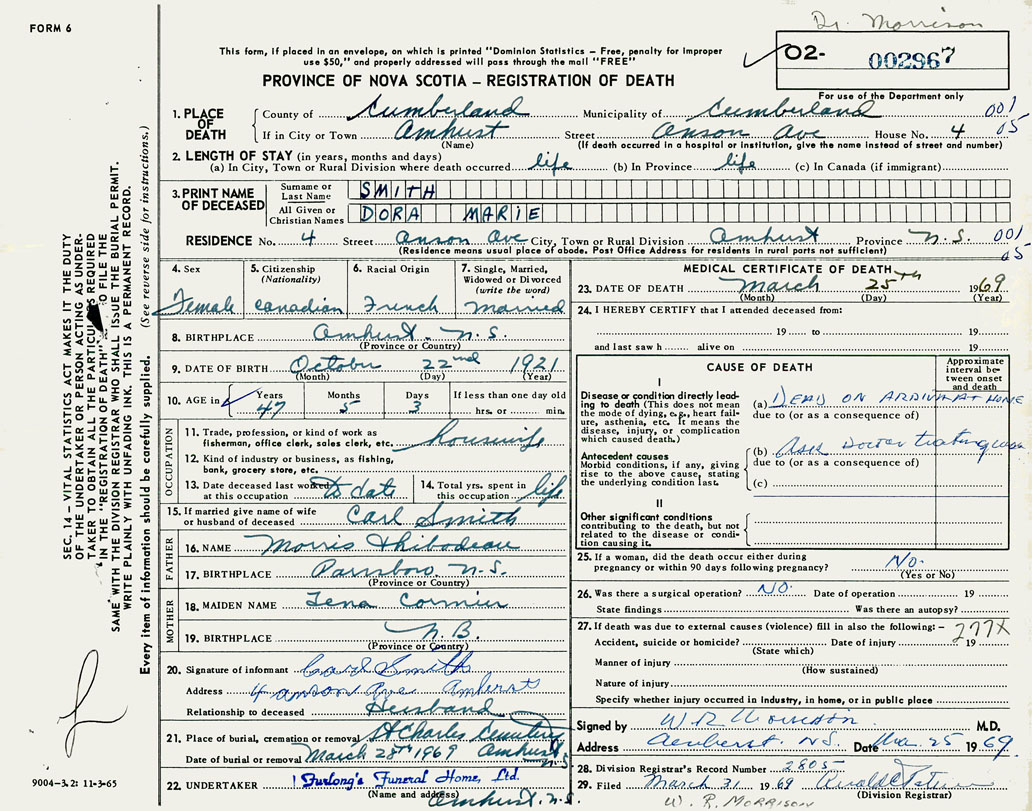 Dr. Morrison
FORM 6
This form, if placed in an envelope, on which is printed "Dominion Statistics – Free, penalty for improper
use $50," and properly addressed will pass through the mail "FREE"
O2- 002967
For use of the Department only
PROVINCE OF NOVA SCOTIA – REGISTRATION OF DEATH
1. PLACE OF DEATH County of Cumberland Municipality of Cumberland 001
If in City or Town Amhust Street Anson Ave House No. 4 05
(Name) (If death occurred in a hospital or institution, give the name instead of street and number)
2. LENGTH OF STAY (in years, months and days)
(a) In City, Town or Rural Division where death occurred life (b) In Province life (c) In Canada (if immigrant)
3. PRINT NAME OF DECEASED Surname or Last Name SMITH
All Given or Christian Names DORA MARIE
RESIDENCE No. 4 Street Anson Ave City, Town or Rural Division Amhust Province N.S. 001
(Residence means usual place of abode. Post Office Address for residents in rural parts not sufficient) 05
4. Sex Female
5. Citizenship (Nationality) Canadian
6. Racial Origin French
7. Single, Married, Widowed or Divorced (write the word) Married
8. BIRTHPLACE Amhust N.S.
(Province or Country)
9. DATE OF BIRTH October 22nd 1921
(Month) (Day) (Year)
10. AGE in Years 47 Months 5 Days 3 If less than one day old hrs. or min.
OCCUPATION
11. Trade, profession, or kind of work as
fisherman, office clerk, sales clerk, etc. housewife
12. Kind of industry or business, as fishing,
bank, grocery store, etc.
13. Date deceased last worked at this occupation to date
14. Total yrs. spent in this occupation life
15. If married give name of wife
or husband of deceased Carl Smith
FATHER
16. NAME Morris Thibodeau
17. BIRTHPLACE Parrsboro, N.S.
(Province or Country)
MOTHER
18. MAIDEN NAME Lena Cormier
19. BIRTHPLACE N.B.
(Province or Country)
20. Signature of informant Carl Smith
Address 4 Anson Ave Amherst
Relationship to deceased Husband
21. Place of burial, cremation or removal St Charles Cemetery
Date of burial or removal March 28th 1969 Amhust N.S.
22. UNDERTAKER Furlong's Funeral Home, Ltd.
(Name and address) Amhust, N.S.
MEDICAL CERTIFICATE OF DEATH
23. DATE OF DEATH March 25th 1969
(Month) (Day) (Year)
24. I HEREBY CERTIFY that I attended deceased from:
19 to 19
and last saw h alive on 19
CAUSE OF DEATH
Approximate interval between onset and death
I
Disease or condition directly leading to death (This does not mean the mode of dying, e.g., heart failure, asthenia, etc. It means the disease, injury, or complication which caused death.)
(a) DEAD ON ARRIVAL AT HOME
due to (or as a consequence of)
Antecedent causes
Morbid conditions, if any, giving rise to the above cause, stating the underlying condition last.
(b) Ask Doctor treating
due to (or as a consequence of)
(c)
II
Other significant conditions
contributing to the death, but not related to the disease or condition causing it.
25. If a woman, did the death occur either during
pregnancy or within 90 days following pregnancy? No.
(Yes or No)
26. Was there a surgical operation? NO. Date of operation 19
State findings Was there an autopsy?
27. If death was due to external causes (violence) fill in also the following: – 277X
Accident, suicide or homicide? Date of injury 19
(State which)
Manner of injury
(How sustained)
Nature of injury
Specify whether injury occurred in industry, in home, or in public place
Signed by W.R Morrison M.D.
Address Amherst. NS. Date Mar 25 1969.
28. Division Registrar's Record Number 2805
29. Filed March 31 1969
(Division Registrar)
W. R. MORRISON
SEC. 14 – VITAL STATISTICS ACT MAKES IT THE DUTY
OF THE UNDERTAKER OR PERSON ACTING AS UNDERTAKER TO OBTAIN ALL THE PARTICULARS REQUIRED
IN THE "REGISTRATION OF DEATH" TO FILE THE
SAME WITH THE DIVISION REGISTRAR WHO SHALL ISSUE THE BURIAL PERMIT.
WRITE PLAINLY WITH UNFADING INK. THIS IS A PERMANENT RECORD.
Every item of information should be carefully supplied. (See reverse side for instructions.)
9004–3.2: 11-3-65